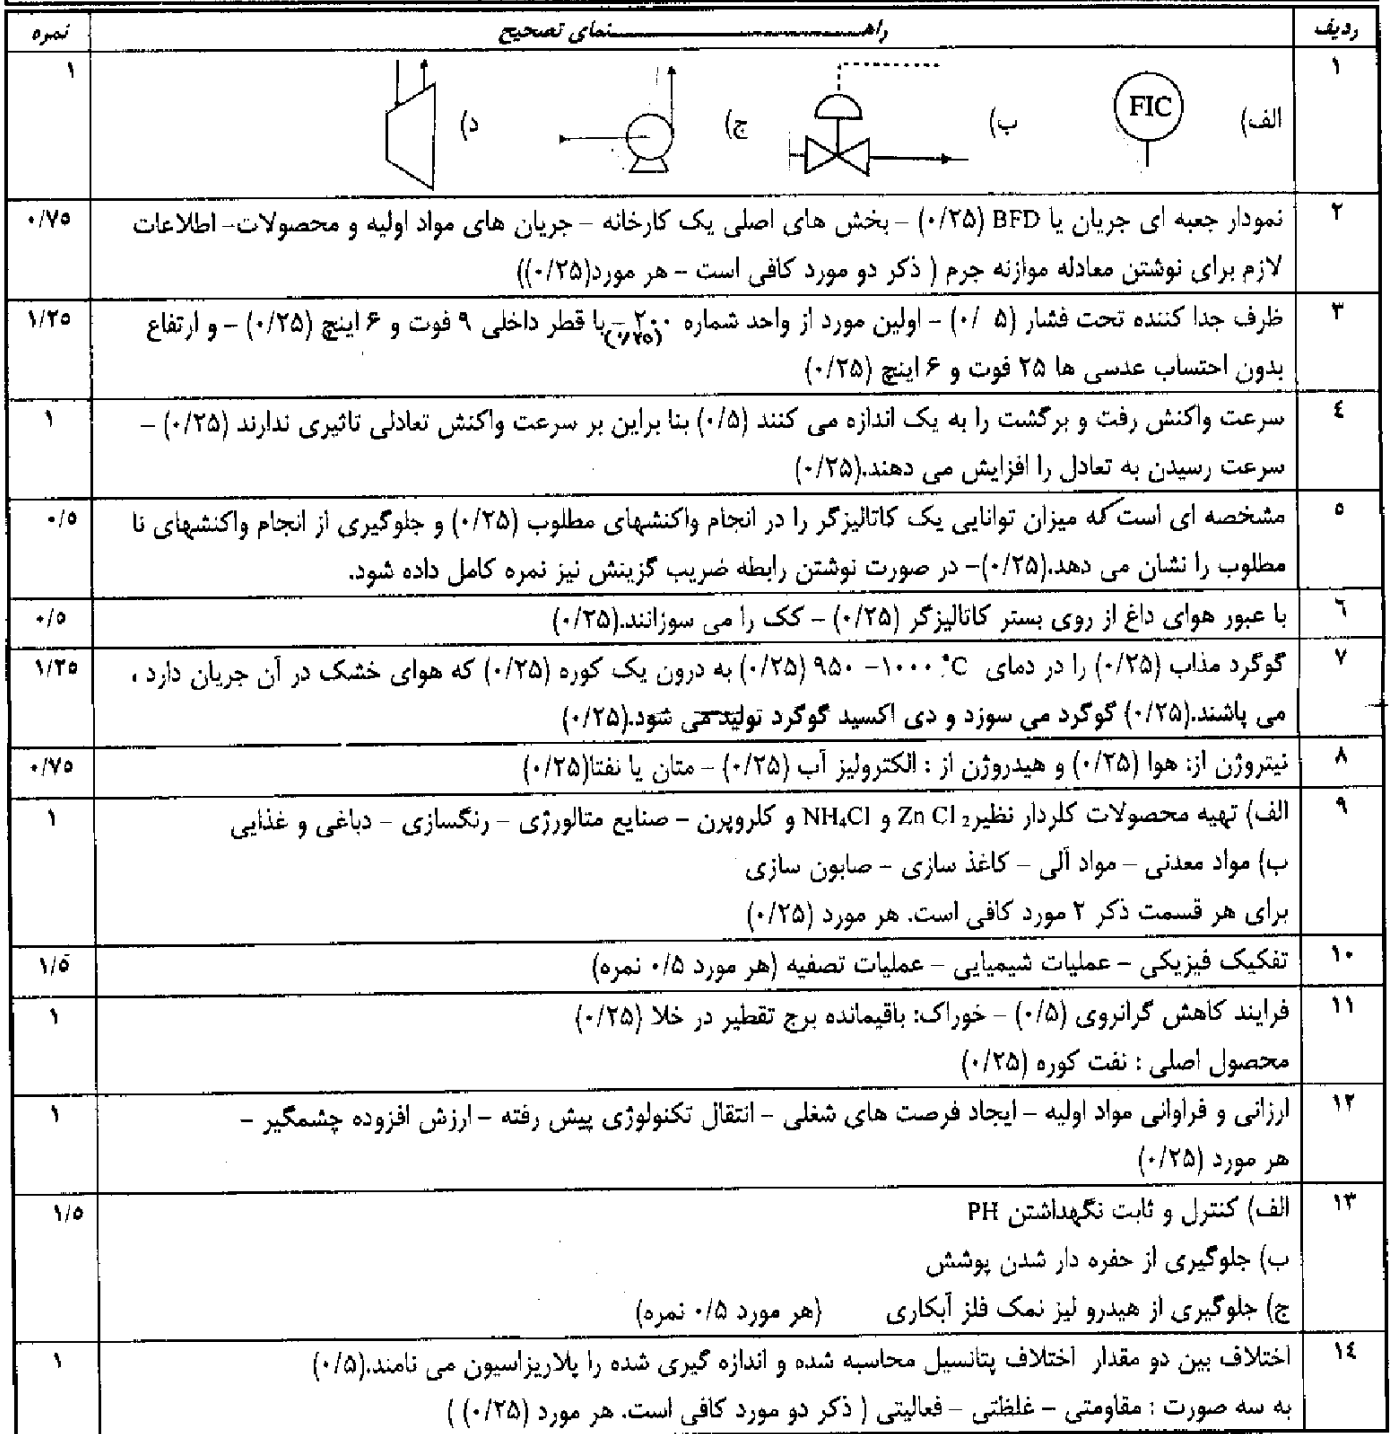 ردیف راهـــــــنمای تصحیح نمره
۱ الف) FIC ب) ج) د) ۱
۲ نمودار جعبه ای جریان یا BFD (۰/۲۵) – بخش های اصلی یک کارخانه – جریان های مواد اولیه و محصولات– اطلاعات ۰/۷۵
لازم برای نوشتن معادله موازنه جرم ( ذکر دو مورد کافی است – هر مورد(۰/۲۵))
۳ ظرف جدا کننده تحت فشار (۵ /۰) – اولین مورد از واحد شماره ۲۰۰ (۰/۲۵) – با قطر داخلی ۹ فوت و ۶ اینچ (۰/۲۵) – و ارتفاع ۱/۲۵
بدون احتساب عدسی ها ۲۵ فوت و ۶ اینچ (۰/۲۵)
٤ سرعت واکنش رفت و برگشت را به یک اندازه می کنند (۰/۵) بنا براین بر سرعت واکنش تعادلی تاثیری ندارند (۰/۲۵) – ۱
سرعت رسیدن به تعادل را افزایش می دهند.(۰/۲۵)
۵ مشخصه ای است که میزان توانایی یک کاتالیزگر را در انجام واکنشهای مطلوب (۰/۲۵) و جلوگیری از انجام واکنشهای نا ۰/۵
مطلوب را نشان می دهد.(۰/۲۵)– در صورت نوشتن رابطه ضریب گزینش نیز نمره کامل داده شود.
٦ با عبور هوای داغ از روی بستر کاتالیزگر (۰/۲۵) – کک را می سوزانند.(۰/۲۵) ۰/۵
۷ گوگرد مذاب (۰/۲۵) را در دمای ۹۵۰ –۱۰۰۰ °C (۰/۲۵) به درون یک کوره (۰/۲۵) که هوای خشک در آن جریان دارد ، ۱/۲۵
می پاشند.(۰/۲۵) گوگرد می سوزد و دی اکسید گوگرد تولید می شود.(۰/۲۵)
۸ نیتروژن از: هوا (۰/۲۵) و هیدروژن از : الکترولیز آب (۰/۲۵) – متان یا نفتا(۰/۲۵) ۰/۷۵
۹ الف) تهیه محصولات کلردار نظیر Zn Cl₂ و NH₄Cl و کلروپرن – صنایع متالورژی – رنگسازی – دباغی و غذایی ۱
ب) مواد معدنی – مواد آلی – کاغذ سازی – صابون سازی
برای هر قسمت ذکر ۲ مورد کافی است. هر مورد (۰/۲۵)
۱۰ تفکیک فیزیکی – عملیات شیمیایی – عملیات تصفیه (هر مورد ۰/۵ نمره) ۱/۵
۱۱ فرایند کاهش گرانروی (۰/۵) – خوراک: باقیمانده برج تقطیر در خلا (۰/۲۵) ۱
محصول اصلی : نفت کوره (۰/۲۵)
۱۲ ارزانی و فراوانی مواد اولیه – ایجاد فرصت های شغلی – انتقال تکنولوژی پیش رفته – ارزش افزوده چشمگیر – ۱
هر مورد (۰/۲۵)
۱۳ الف) کنترل و ثابت نگهداشتن PH ۱/۵
ب) جلوگیری از حفره دار شدن پوشش
ج) جلوگیری از هیدرو لیز نمک فلز آبکاری (هر مورد ۰/۵ نمره)
۱٤ اختلاف بین دو مقدار اختلاف پتانسیل محاسبه شده و اندازه گیری شده را پلاریزاسیون می نامند.(۰/۵) ۱
به سه صورت : مقاومتی – غلظتی – فعالیتی ( ذکر دو مورد کافی است. هر مورد (۰/۲۵) )